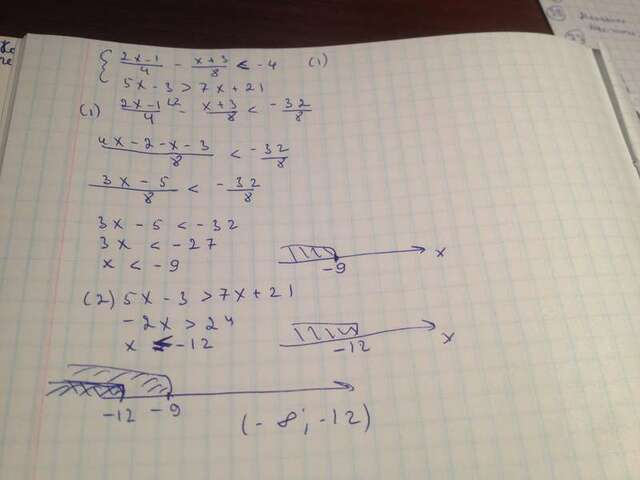 { 2x-1/4 - x+3/8 < -4 (1)
5x - 3 > 7x + 21
(1) 2x-1/4 ⁽² - x+3/8 < - 32/8
4x - 2 - x - 3/8 < - 32/8
3x - 5/8 < - 32/8
3x - 5 < - 32
3x < - 27
x < - 9
-9 x
(2) 5x - 3 > 7x + 21
- 2x > 24
x < -12
-12 x
-12 -9
(- 8; -12)